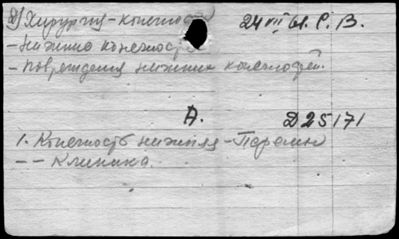 2) Хирургия - конечност 24 VII 61. Р. В.
- нижние конечности
- повреждения нижних конечностей.
А. Д25171
1. Конечность нижняя - Перелом
- - Клиника.